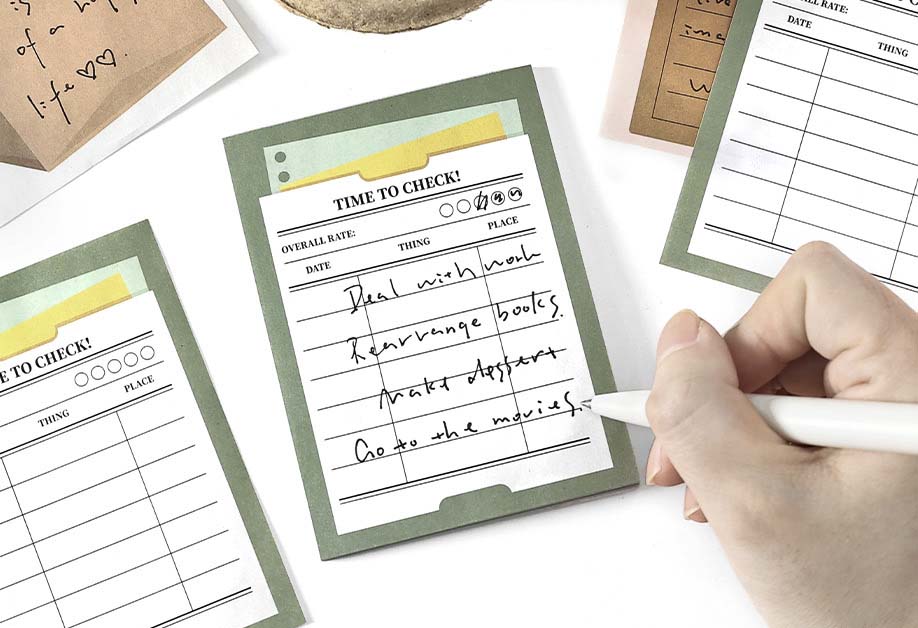 is
of a
life ♡♡.
TIME TO CHECK!
OVERALL RATE:
DATE THING PLACE
Deal with work
Rearrange books.
Make dessert
Go to the movies.
E TO CHECK!
THING PLACE
OVERALL RATE:
DATE THING